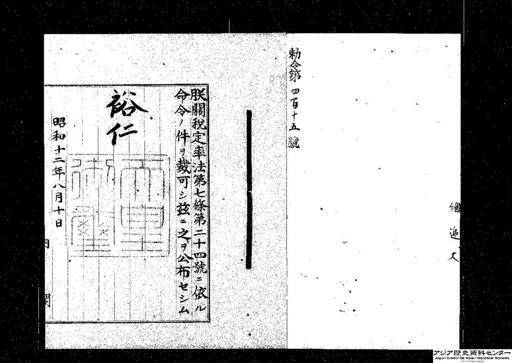 勅令第四百十五號
朕關稅定率法第七條第二十四號ニ依ル
命令ノ件ヲ裁可シ茲ニ之ヲ公布セシム
裕仁
昭和十二年八月十日
アジア歴史資料センター
Japan Center for Asian Historical Records